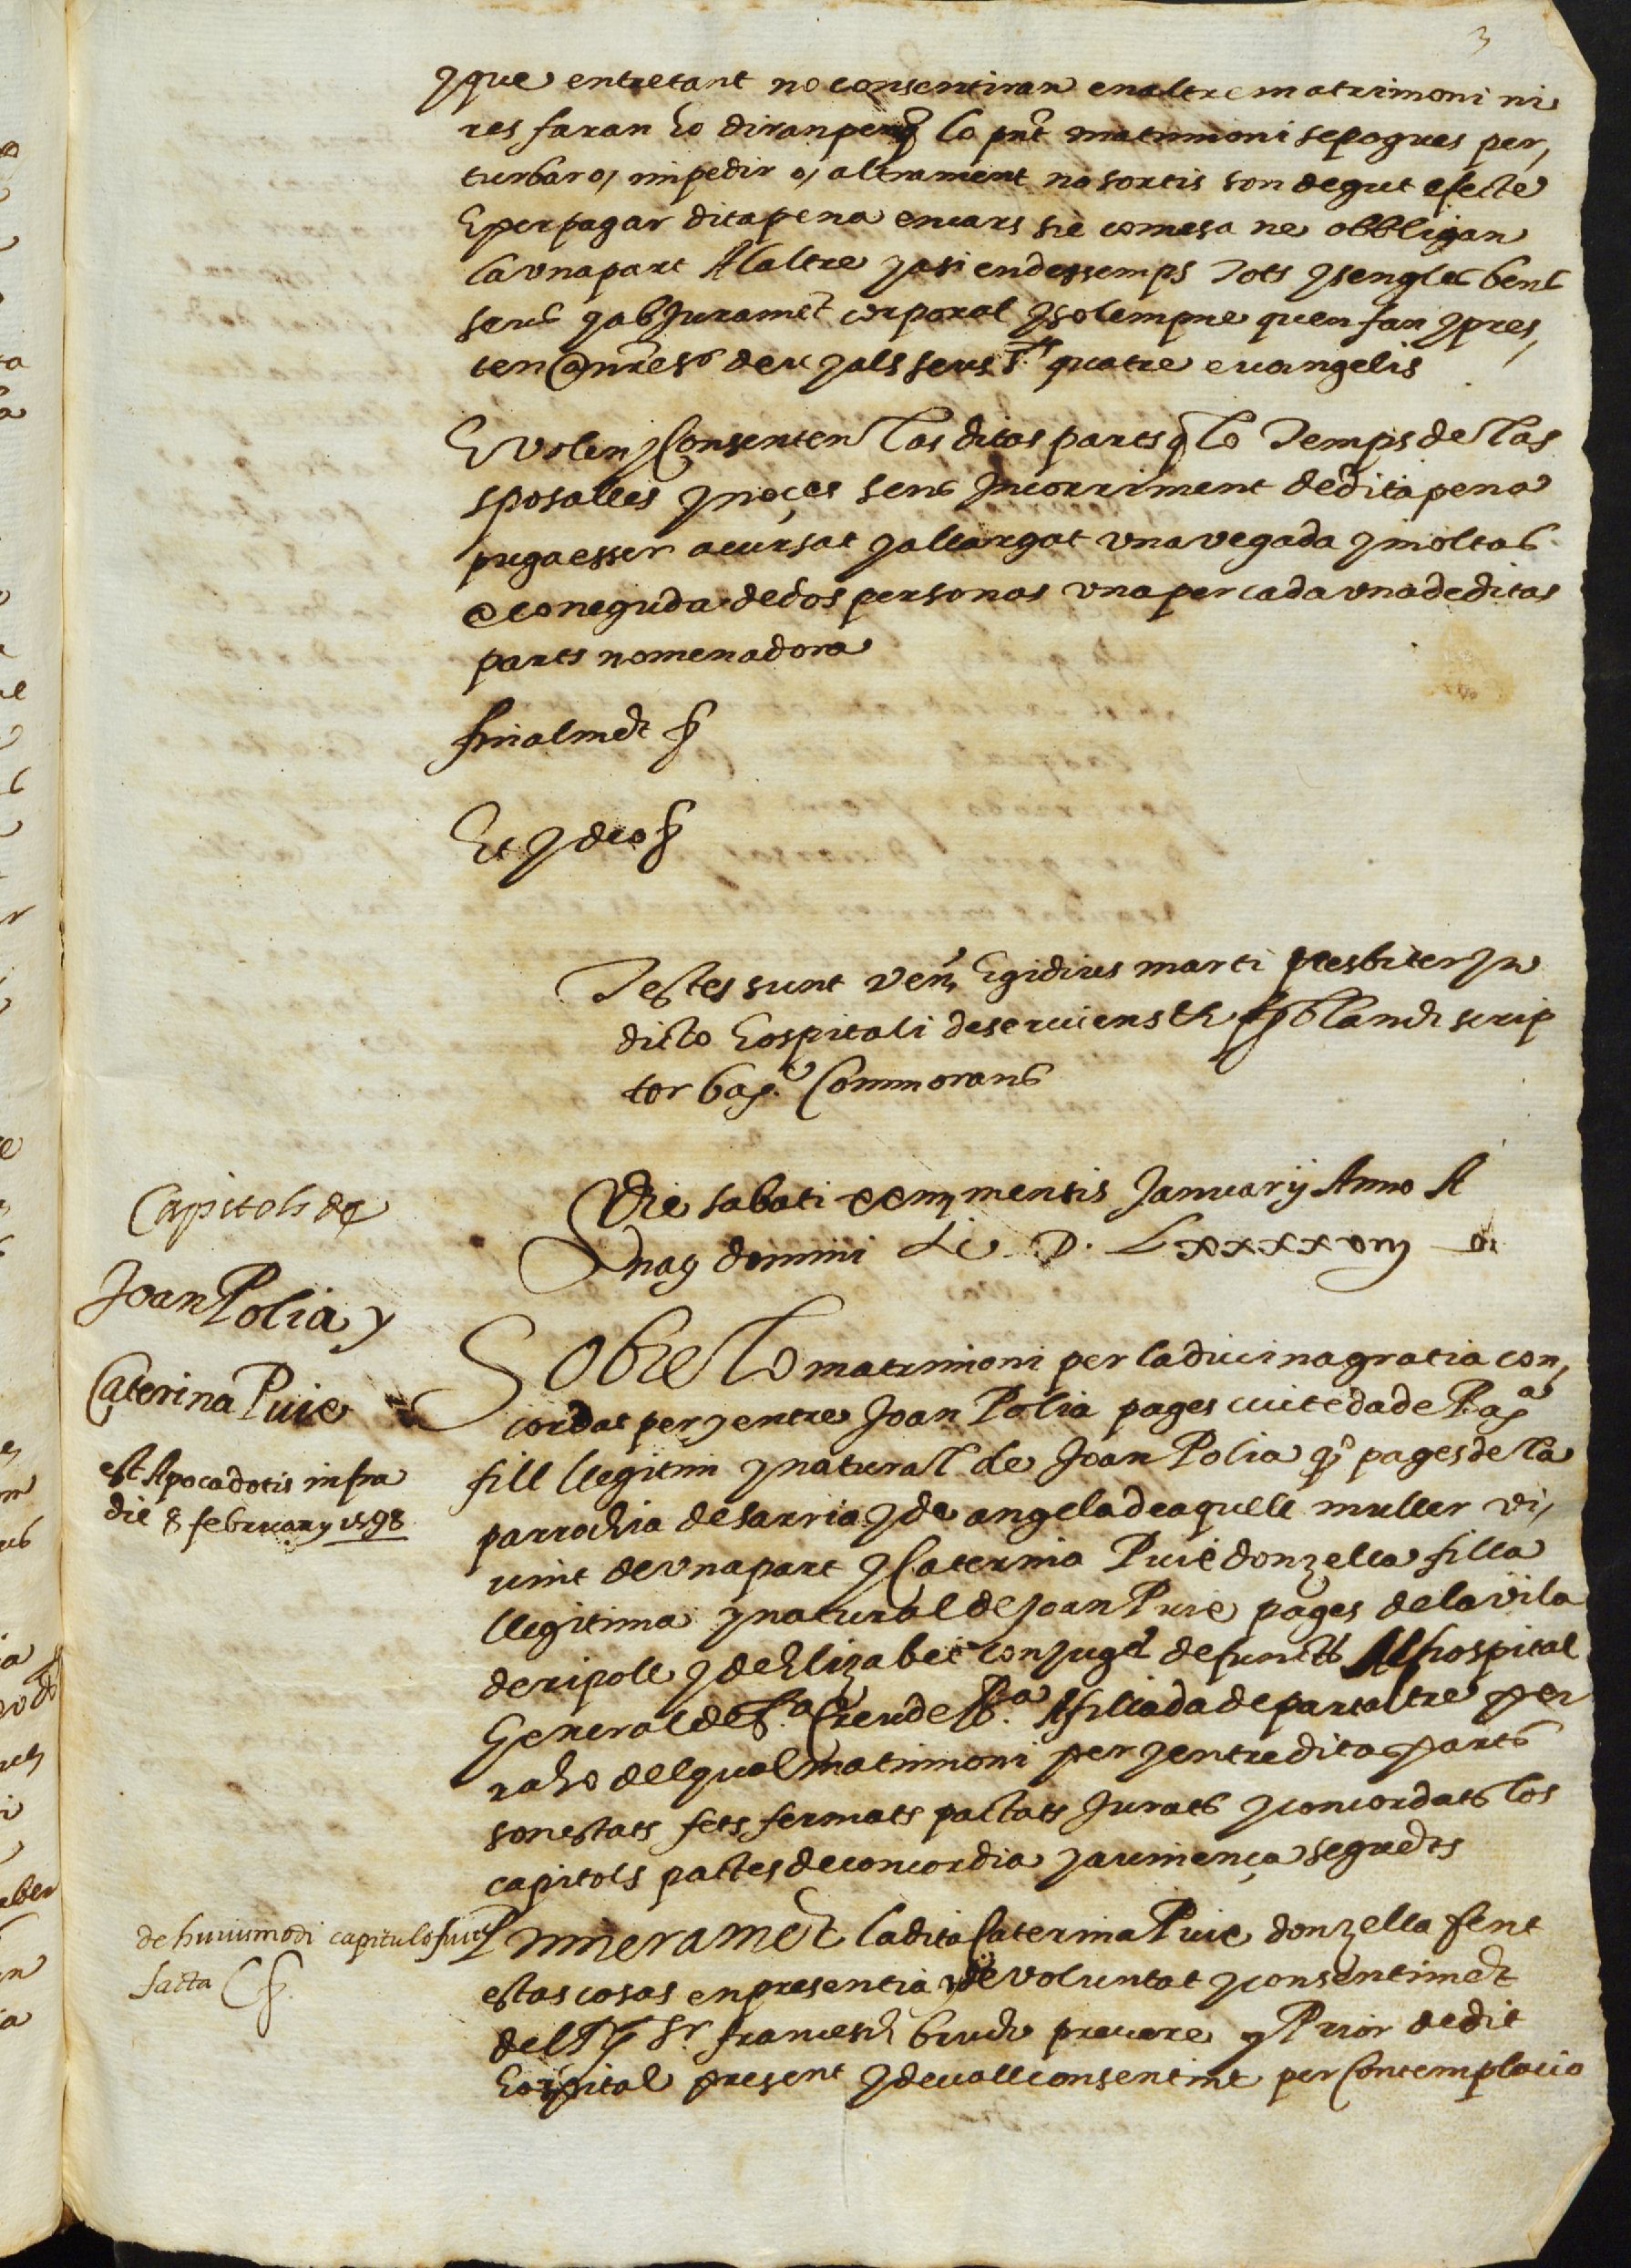 3
y que entretant no consentiran en altre matrimoni ni
res faran ho diran perq̃ lo pñt matrimoni se pogues per,
turbar o, impedir o, altrament no sortis son degut efecte
E per pagar dita pena en cars sie comesa ne obbligan
la vna part A laltre y asi endessemps Tots y sengles bens
seus y ab Jurament corporal y solempne quen fan y pres,
ten @ nr̃e Sʳ deu y als seus Sᵗˢ quatre euangelis
E volen y Consenten las ditas parts q̃ lo Temps de las
sposalles y noçes sens Incorriment de dita pena
puga esser acursat y allargat vna vegada y moltas
@ coneguda de dos personas vna per cada vna de ditas
parts nomenadora
finalmẽt &
Et Ideo &
Testes sunt Veñ. Egidius marti presbiter In
dicto hospitali deseruiens & blanch scrip
tor Barᵉ Commorans
Capitols de
Joan Polia y
Caterina Puie
est Apoca dotis infra
die 8 february 1598
Die sabati xxiiij mensis Januarij Anno A
Natᵉ domini M. D. Lxxxxviij
Sobre Lo matrimoni per la diuina gratia con,
cordat per y entre Joan Polia pages ciutedà de Barᵃ
fill llegitim y natural de Joan Polia q̃º pages de la
parrochia de sarria y de angela de aquell muller vi,
uint de vna part y Caterina Puie donzella filla
llegitima y natural de Joan Puie pages de la vila
de ripoll y de Elizabet conjugẽs defuncts Al hospital
General de Sᵗᵃ Creu de Bᵃ Afiliada de part altre per
raho del qual matrimoni per y entre ditas parts
son estats fets fermats pactats Jurats y concordats los
capitols pactes de concordia y auinença seguẽts
de huiusmodi capitulo fuit
facta &.
Primeramẽt la dita Caterina Puie donzella fent
estas cosas en presentia y de voluntat y consentimẽt
del Rᵗ Sʳ. francesch bruch preuere y Prior de dit
hospital present y deuall consentint per Contemplacio